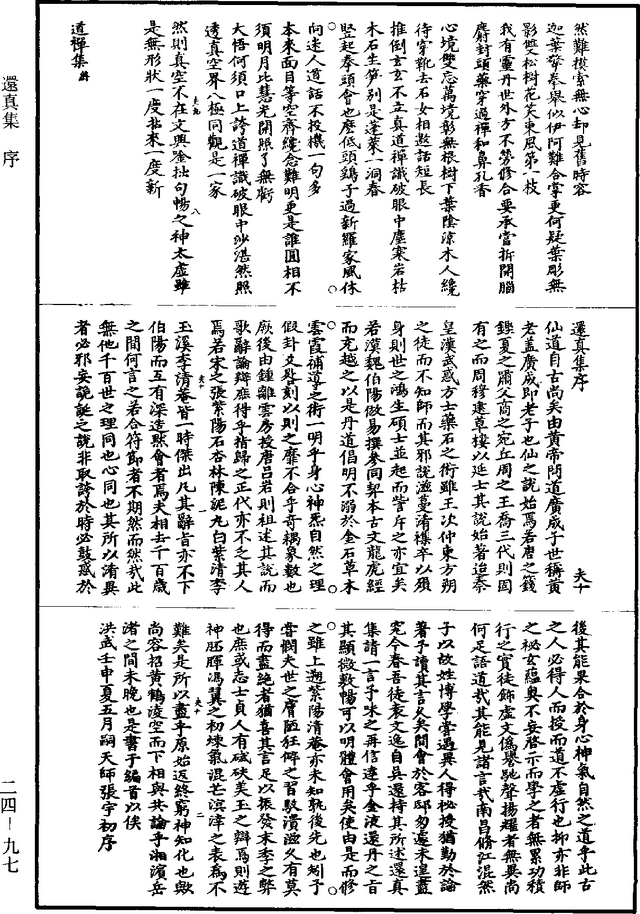 還真集　序
二四－九七
然難摸索無心却見舊時容
迦葉擎拳舉似伊阿難合掌更何疑葉彫無
影雙松樹花笑東風第一枝
我有靈丹世外方不勞修合要承當拆開腦
麝封頭藥穿過禪和鼻孔香
心境雙忘萬境彰無根樹下葉陰涼木人纔
待穿靴去石女相邀話短長
推倒玄玄不立真道禪識破眼中塵寒岩枯
木石生笋別是蓬萊一洞春
竪起拳頭會也麼低頭鷂子過新羅家風休
向迷人道話不投機一句多
本來面目等空齊纔念難明更是誰圓相不
須明月比慧光開照了無虧
大悟何須口上誇道禪識破眼中沙湛然照
透真空界八極同觀是一家
然則真空不在文興發拙句暢之神太虛雖
是無形狀一度拈來一度新
道禪集終
還真集序
仙道自古尚矣由黃帝問道廣成子世稱黃
老蓋廣成即老子也仙之說始焉若唐之籛
鏗夏之嘯父商之宛丘周之王喬三代則固
有之而周穆建草樓以延士其說始著迨秦
皇漢武惑方士藥石之術雖王次仲東方朔
之徒而不知師而其邪說滋蔓淆襍卒以殞
身則世之鴻生碩士並起而訾斥之亦宜矣
若漢魏伯陽倣易撰參同契本古文龍虎經
而充越之以是丹道倡明不溺於金石草木
雲霞補導之術一明乎身心神炁自然之理
假卦爻晷刻以則之靡不合乎奇耦象數也
厥後由鍾離雲房授唐呂岩則祖述其說而
歌辭論辯庶得乎指歸之正代亦不乏其人
焉若宋之張紫陽石杏林陳泥丸白紫清李
玉溪李清菴皆一時傑出凡其辭旨亦不下
伯陽而互有深造默會者焉夫相去千百歲
之間何言之若合符節者不期然而然哉此
無他千百世之理同也心同也其所以淆異
者必邪妄詭誕之說非取誇於時必鼓惑於
後其能果合於身心神氣自然之道乎此古
之人必得人而授而道不虛行也抑亦非師
之秘玄蘊奧不妄啓示而學之者無累功積
行之實徒飾虛文僞譽馳聲揚耀者無異尚
何足語道哉其能見諸言哉南昌修江混然
子以故姓博學嘗遇異人得秘授猶勤於論
著予讀其言久矣間會於客邸匆遽未遑盡
究今春吾徒袁文逸自吳還持其所述還真
集請一言予味之再信達乎金液還丹之旨
其顯微敷暢可以明體會用矣使由是而修
之雖上遡紫陽清菴亦未知孰後先也矧予
嘗憫夫世之膚陋狂僻之習馭潰滔久有莫
得而盡絕者猶喜其言足以振發末季之弊
也庶或志士貞人有碔砆美玉之辯焉則遊
神胚腪馮翼之初煉氣混芒溟涬之表爲不
難矣是所以盡乎原始返終窮神知化也歟
尚容招黃鶴淩空而下相與共論乎湘濱岳
渚之間未晚也是書于編首以俟
洪武壬申夏五月嗣天師張宇初序